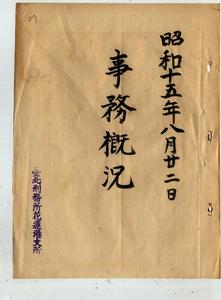 昭和十五年八月廿二日
事務概況
臺北刑務所花蓮港支所